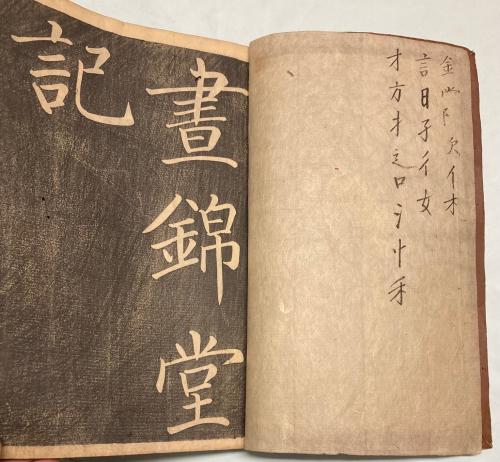 金 欠 亻 木
言 日 孑 彳 女
才 方 扌 辶 口 氵 忄 禾
晝錦堂
記